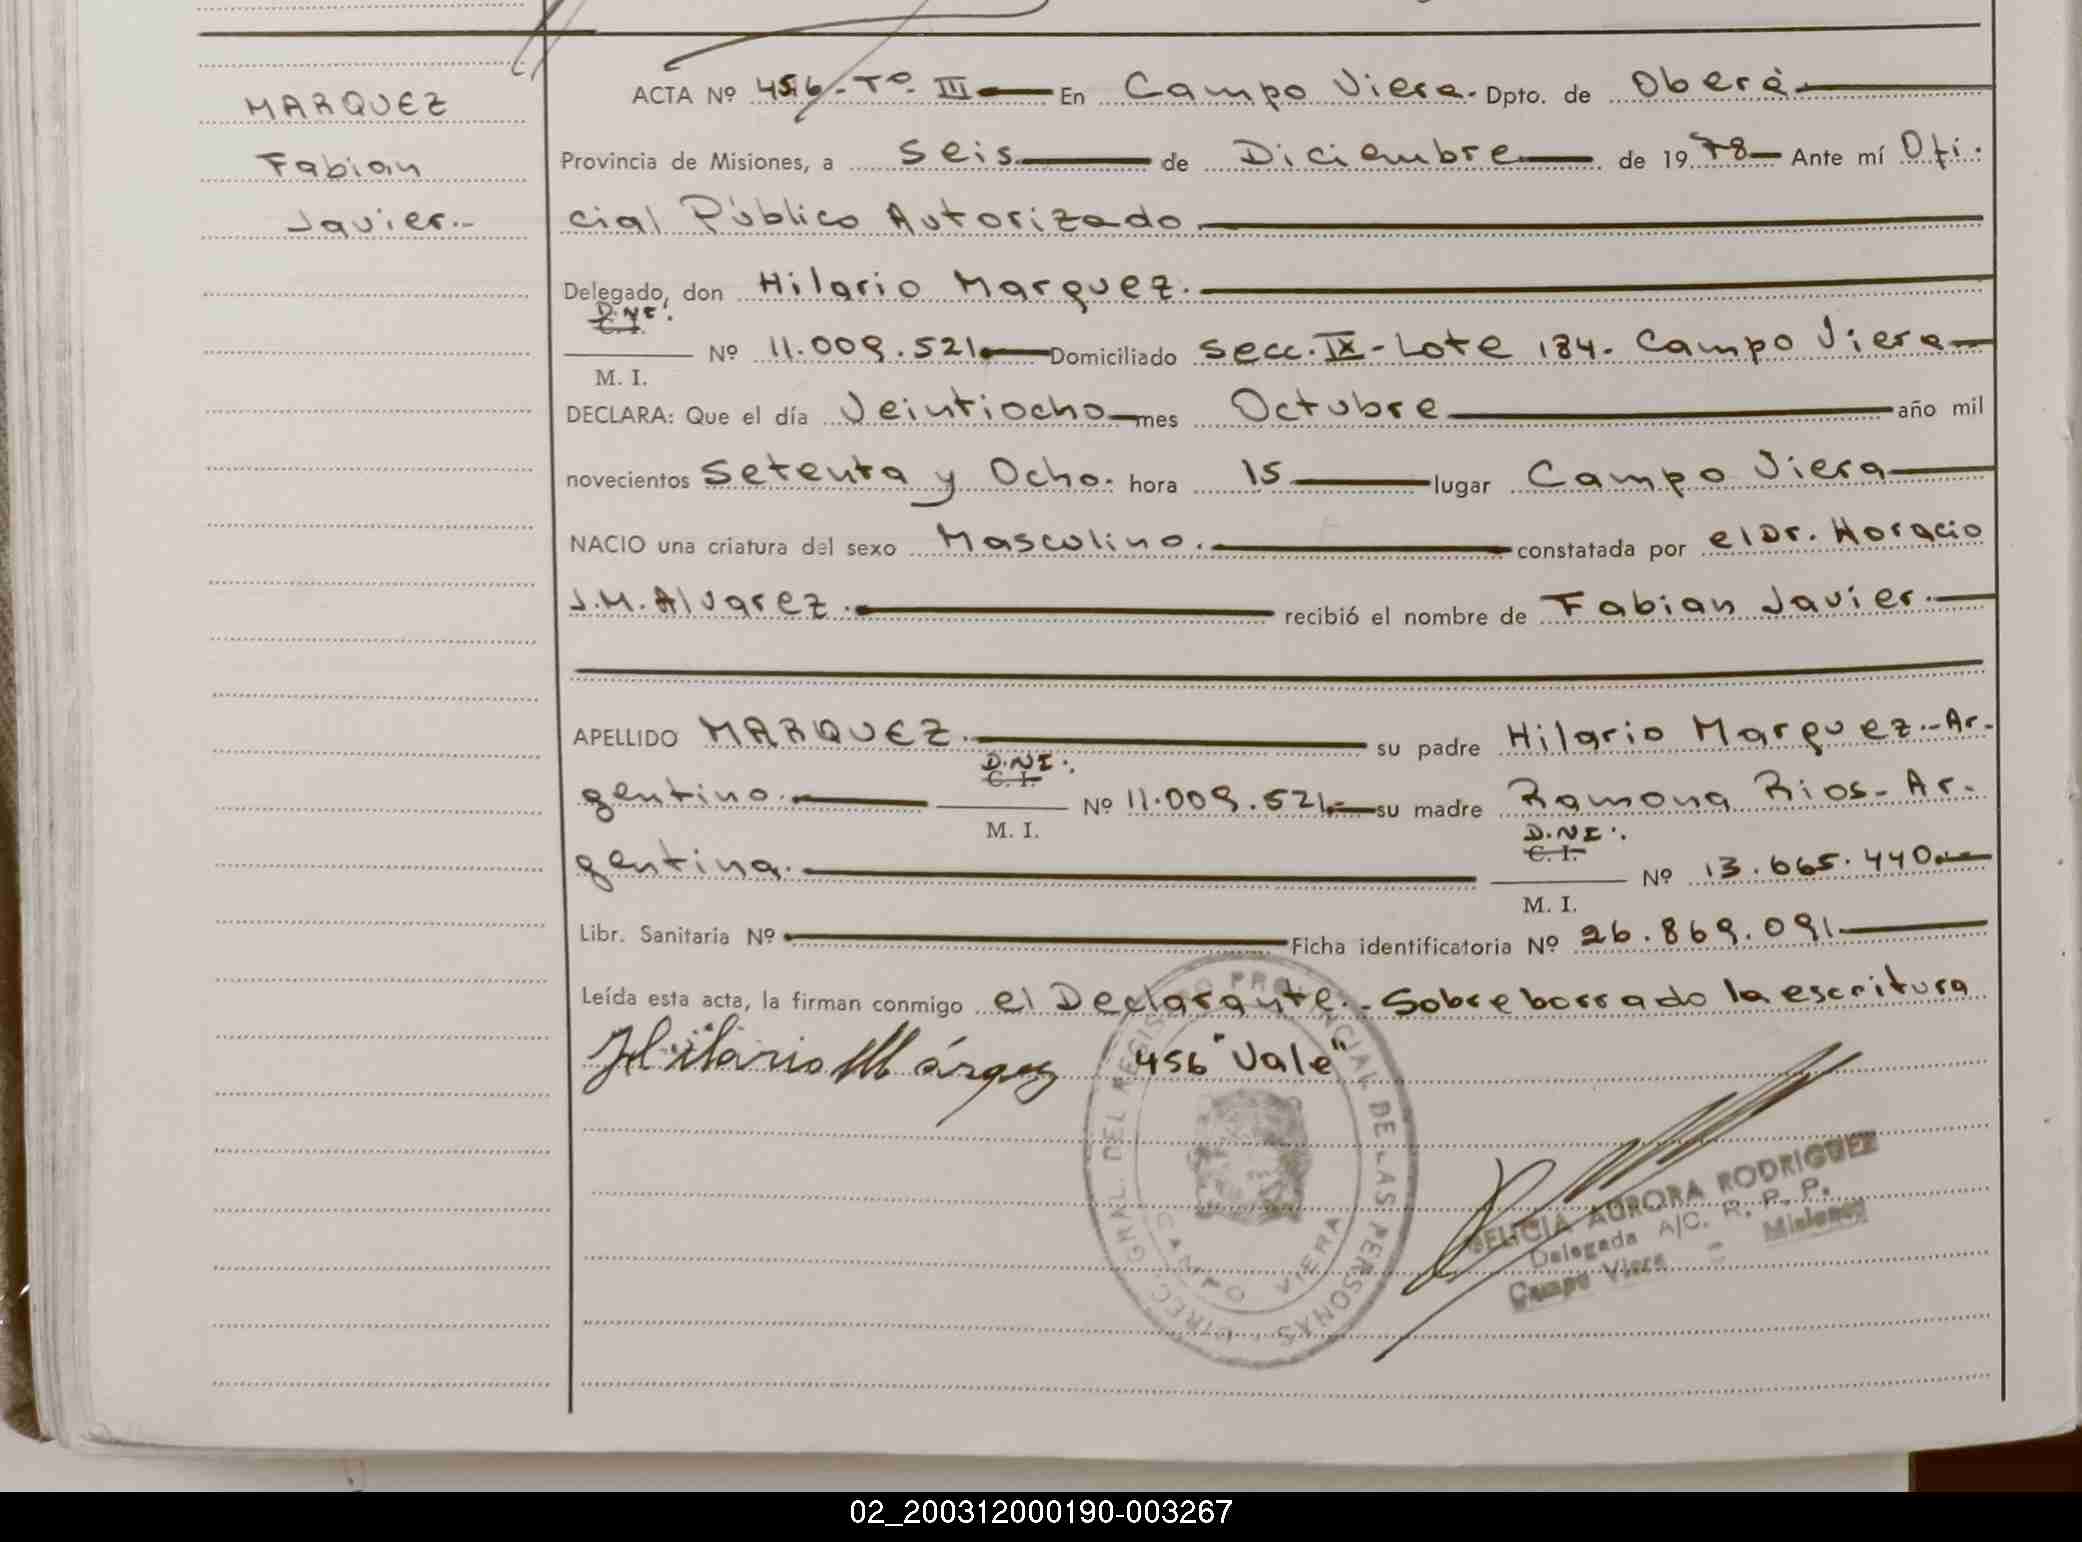 MARQUEZ
Fabian
Javier.-
ACTA Nº 456-Tº. III En Campo Viera. Dpto. de Oberá
Provincia de Misiones, a seis de Diciembre de 1978 Ante mí Ofi-
cial Público Autorizado
Delegado, don Hilario Marquez.
D.N.I.
C. I.
M. I. Nº 11.009.521 Domiciliado Secc. IX-Lote 184. Campo Viera
DECLARA: Que el día Veintiocho mes Octubre año mil
novecientos Setenta y Ocho. hora 15 lugar Campo Viera
NACIO una criatura del sexo Masculino. constatada por el Dr. Horacio
J.M. Alvarez. recibió el nombre de Fabian Javier.
APELLIDO MARQUEZ. su padre Hilario Marquez.-Ar-
gentino. D.N.I. C. I. M. I. Nº 11.009.521.- su madre Ramona Rios- Ar-
gentina. D.N.I. C. I. M. I. Nº 13.665.440.-
Libr. Sanitaria Nº Ficha identificatoria Nº 26.869.091
Leída esta acta, la firman conmigo el Declarante.- Sobreborrado la escritura
Hilario Márquez 456 "Vale"
DIREC. GRAL. DEL REGISTRO PROVINCIAL DE LAS PERSONAS
CAMPO VIERA
FELICIA AURORA RODRIGUEZ
Delegada A/C. R. P. P.
Campo Viera - Misiones
02_200312000190-003267